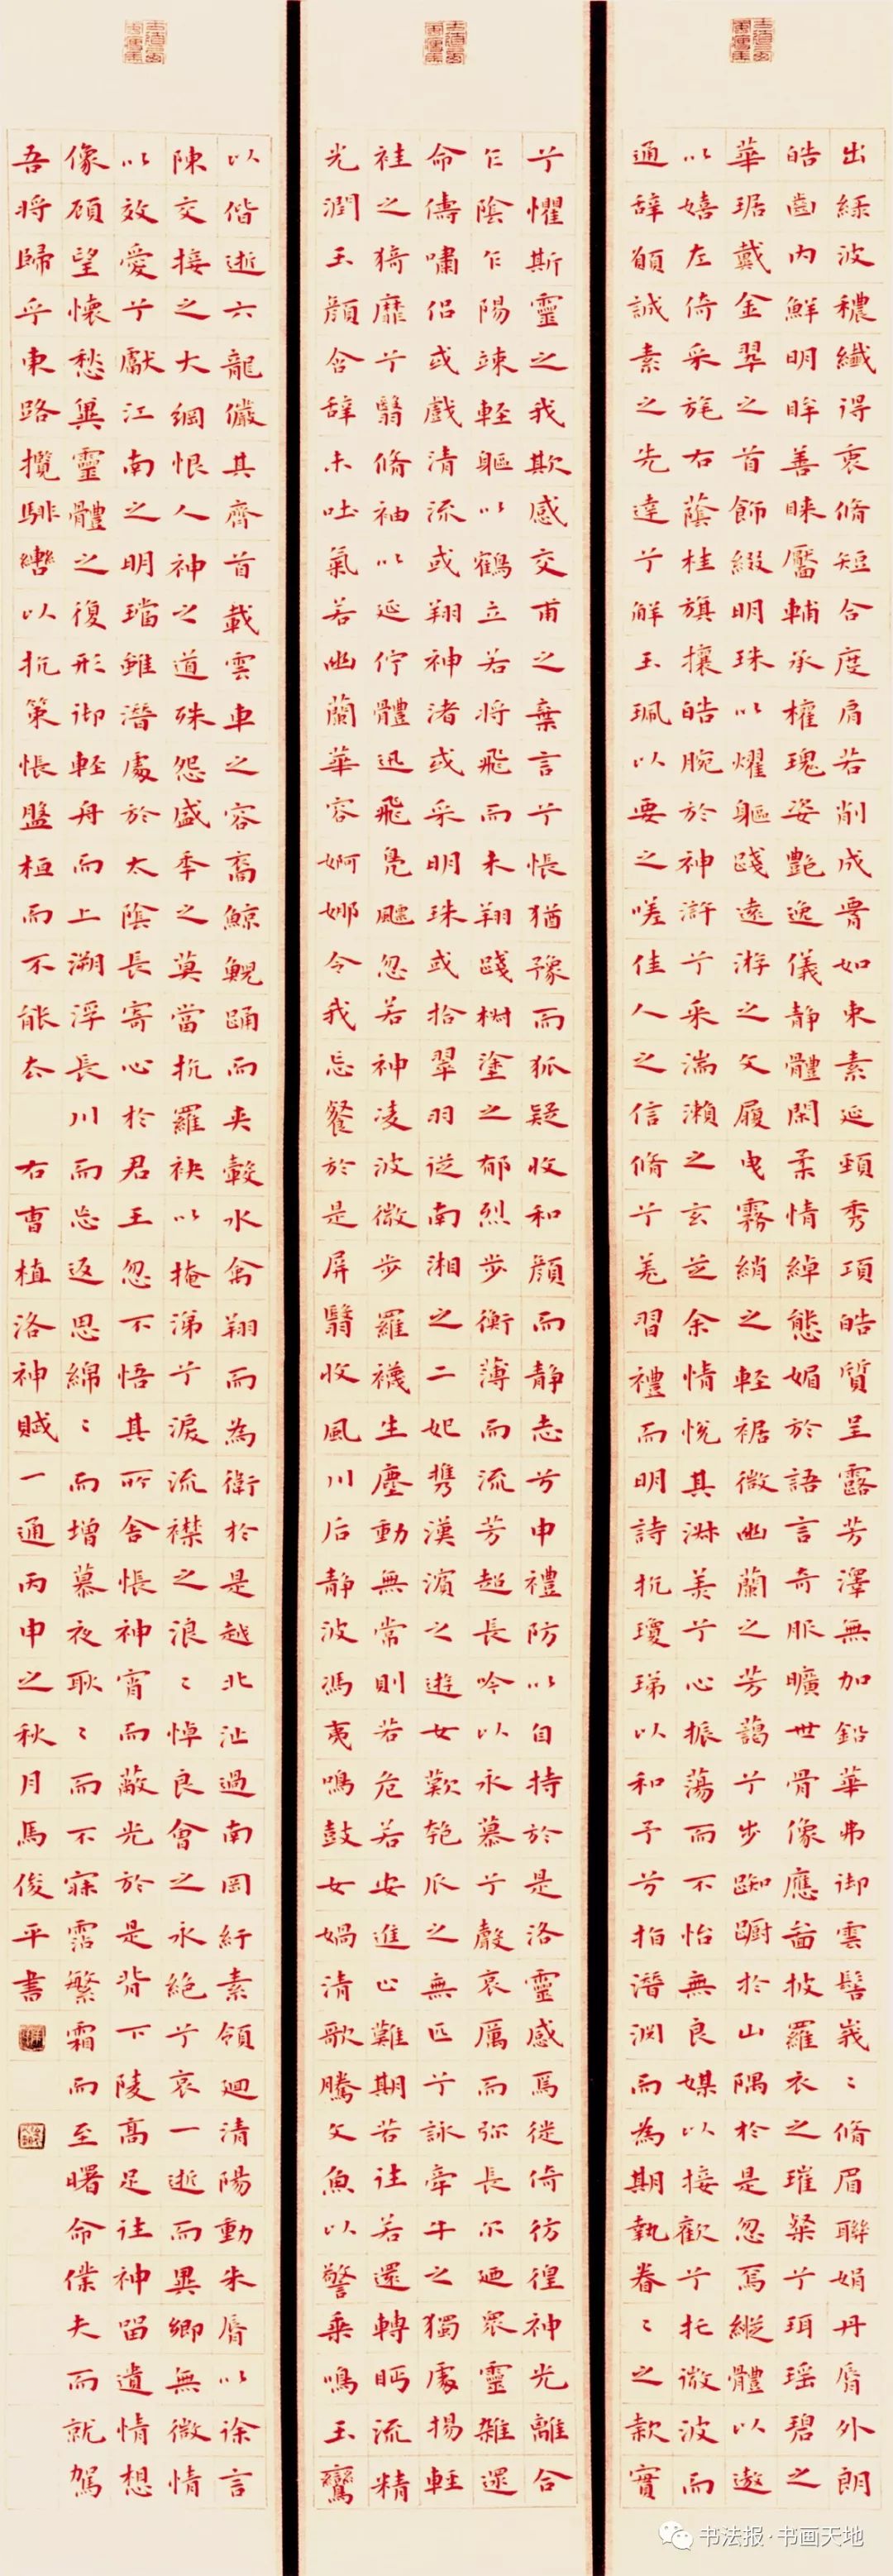 出緑波穠纖得衷脩短合度肩若削成腰如束素延頸秀項皓質呈露芳澤無加鉛華弗御雲髻峩〻脩眉聯娟丹脣外朗
皓齒内鮮明眸善睞靨輔承權瑰姿艷逸儀静體閑柔情綽態媚於語言奇服曠世骨像應圖披羅衣之璀粲兮珥瑶碧之
華琚戴金翠之首飾綴明珠以耀軀踐遠游之文履曳霧綃之輕裾微幽蘭之芳藹兮步踟躕於山隅於是忽焉縱體以遨
以嬉左倚采旄右蔭桂旗攘皓腕於神滸兮采湍瀨之玄芝余情悦其淑美兮心振蕩而不怡無良媒以接歡兮托微波而
通辭願誠素之先達兮解玉珮以要之嗟佳人之信脩兮羌習禮而明詩抗瓊珶以和予兮指潛淵而為期執眷〻之款實
兮懼斯靈之我欺感交甫之棄言兮悵猶豫而狐疑收和顔而静志兮申禮防以自持於是洛靈感焉徙倚彷徨神光離合
乍陰乍陽竦輕軀以鶴立若將飛而未翔踐椒塗之郁烈步衡薄而流芳超長吟以永慕兮聲哀厲而弥長尓廼眾靈雜遝
命儔嘯侣或戲清流或翔神渚或采明珠或拾翠羽從南湘之二妃攜漢濱之遊女歎匏瓜之無匹兮詠牽牛之獨處揚輕
袿之猗靡兮翳脩袖以延佇體迅飛鳧飄忽若神凌波微步羅襪生塵動無常則若危若安進止難期若往若還轉眄流精
光潤玉顔含辭未吐氣若幽蘭華容婀娜令我忘餐於是屏翳收風川后静波馮夷鳴鼓女媧清歌騰文魚以警乘鳴玉鸞
以偕逝六龍儼其齊首載雲車之容裔鯨鯢踊而夹轂水禽翔而為衛於是越北沚過南岡紆素領迴清陽動朱脣以徐言
陳交接之大綱恨人神之道殊怨盛年之莫當抗羅袂以掩涕兮淚流襟之浪〻悼良會之永絶兮哀一逝而異鄉無微情
以效愛兮獻江南之明璫雖潛處於太陰長寄心於君王忽不悟其所舍悵神宵而蔽光於是背下陵高足往神留遺情想
像顧望懷愁冀靈體之復形御輕舟而上溯浮長川而忘返思綿〻而增慕夜耿〻而不寐霑繁霜而至曙命僕夫而就駕
吾將歸乎東路攬騑轡以抗策悵盤桓而不能去 右曹植洛神賦一通丙申之秋月馬俊平書
书法报·书画天地